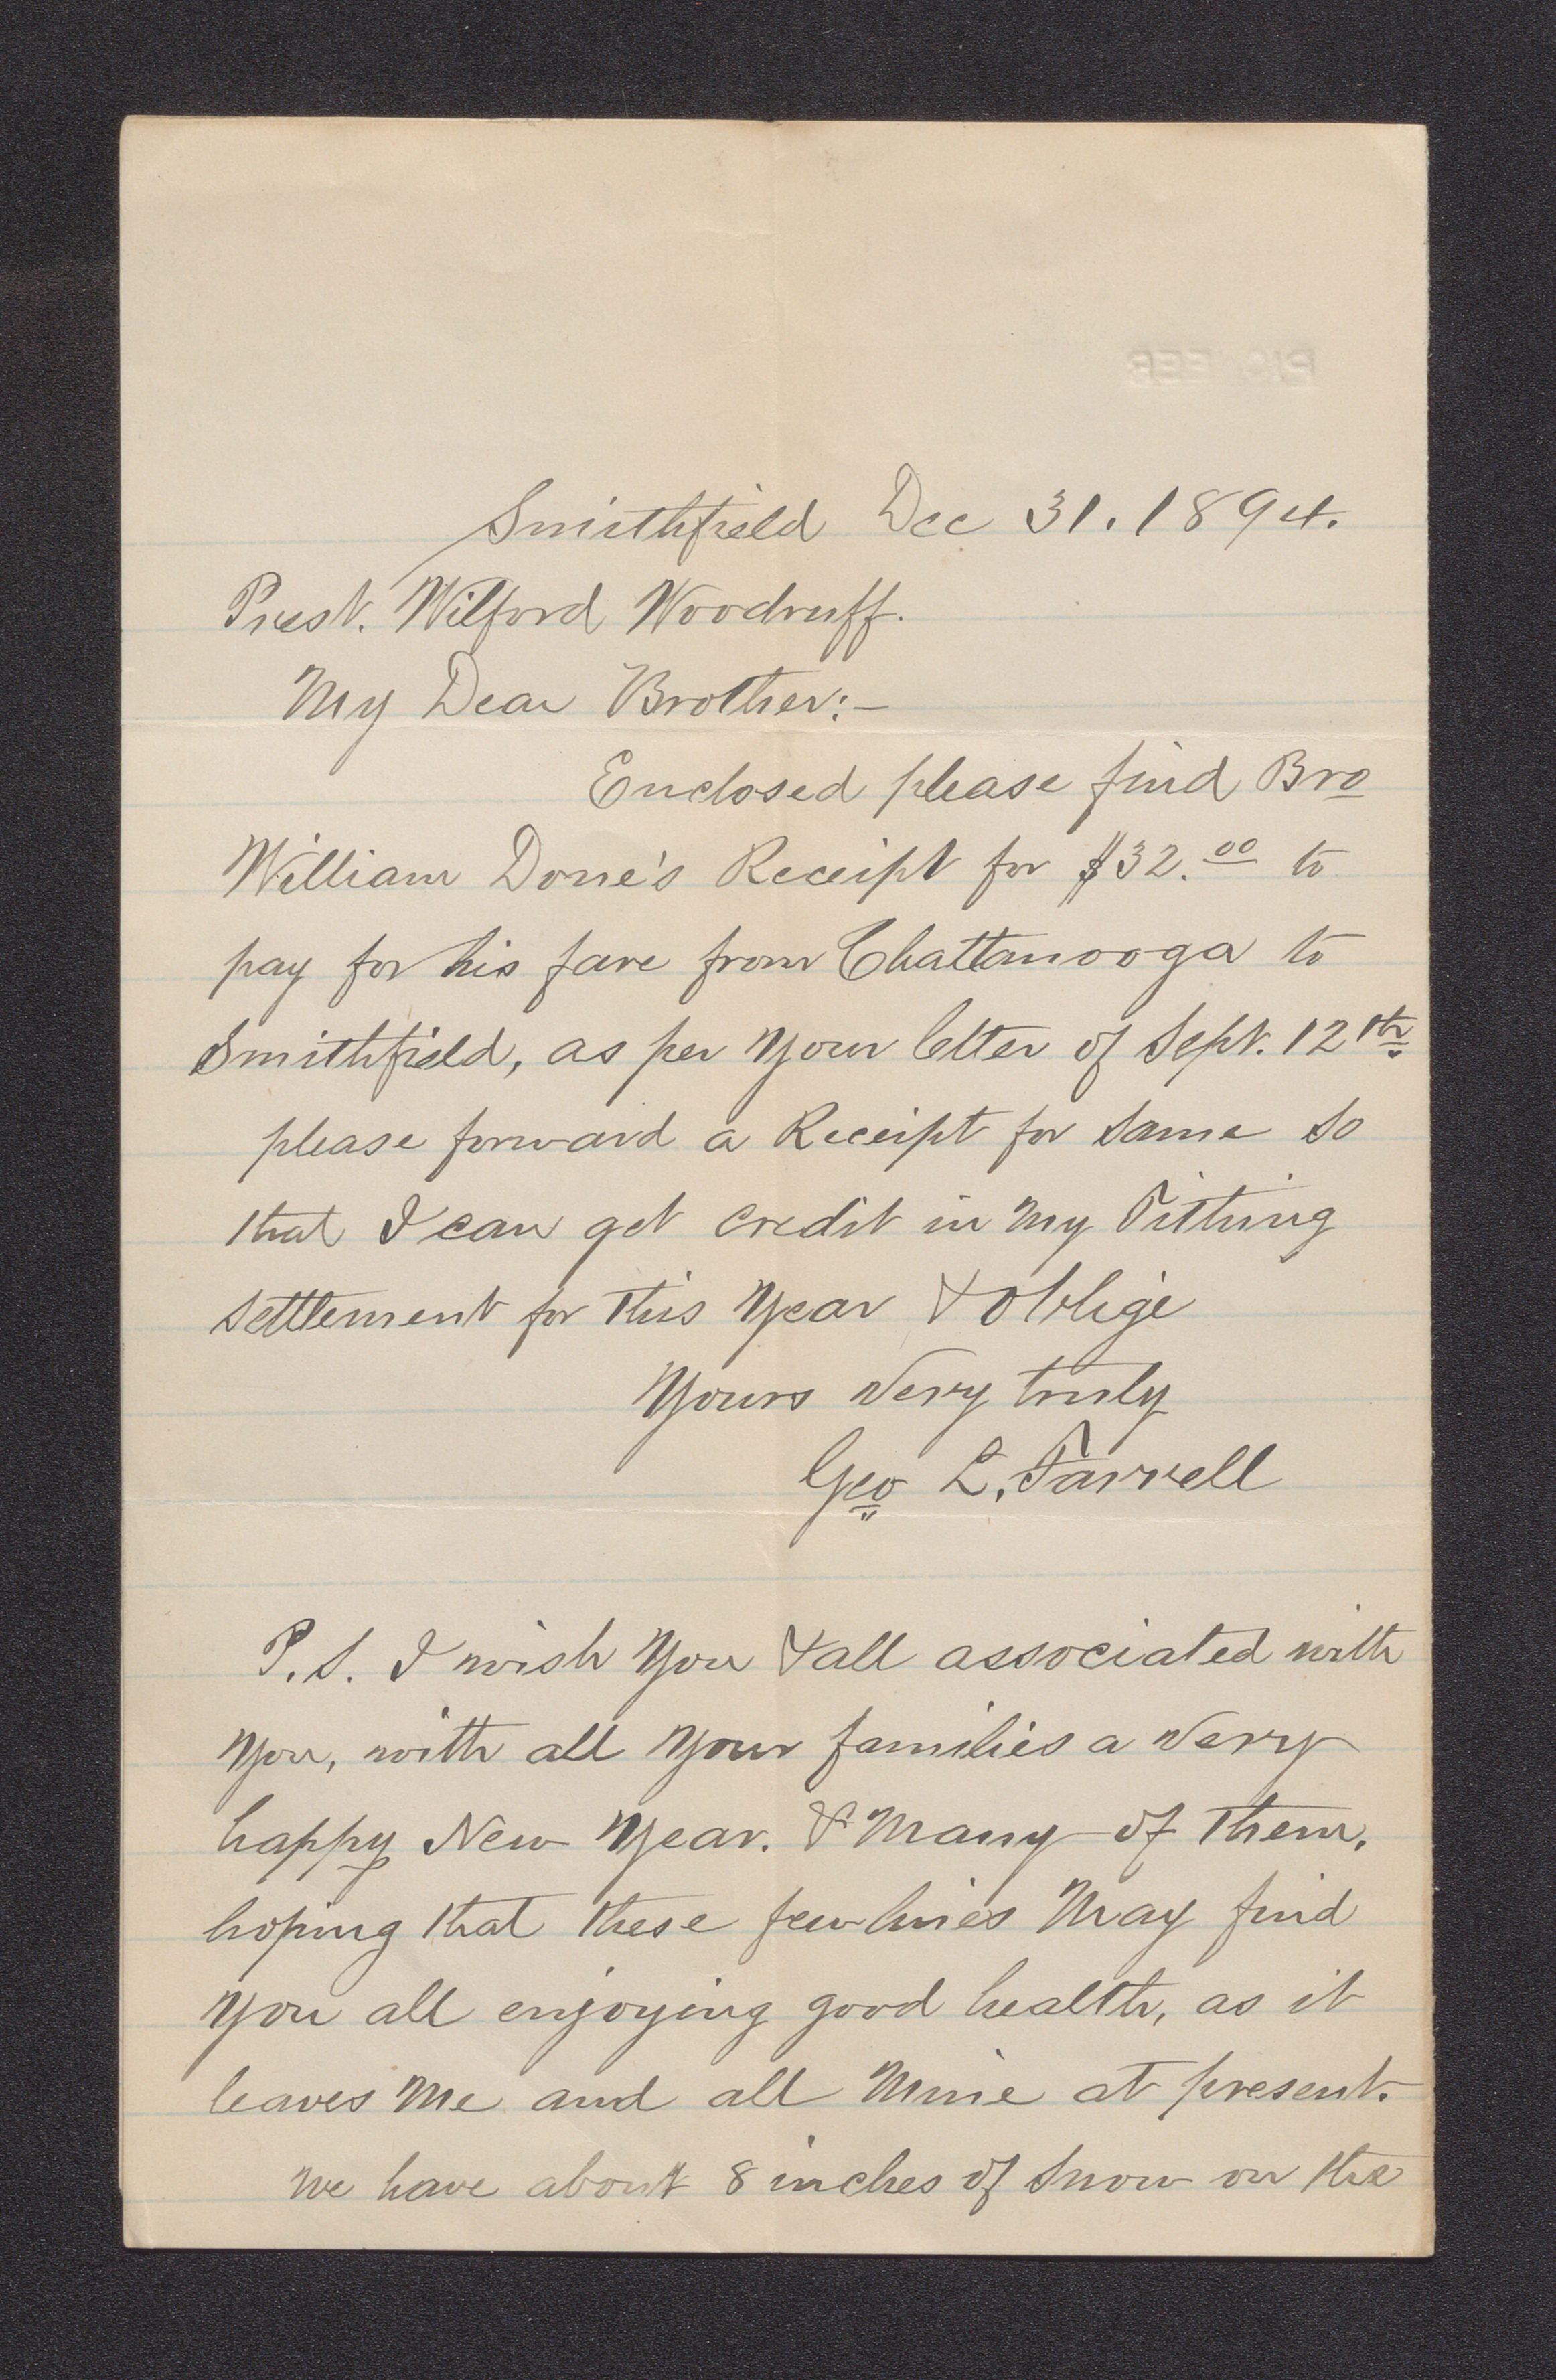 Smithfield Dec 31. 1894.
Prest. Wilford Woodruff.
My Dear Brother:—
Enclosed please find Bro
William Done's Receipt for $32.00 to
pay for his fare from Chattanooga to
Smithfield, as per your letter of Sept. 12th
please forward a Receipt for same so
that I can get credit in my Tithing
settlement for this year & oblige
Yours very truly
Geo L. Farrell
P.S. I wish you & all associated with
you, with all your families a very
happy New Year. & Many of them,
hoping that these few lines May find
you all enjoying good health, as it
leaves Me and all Mine at present.
We have about 8 inches of snow on the